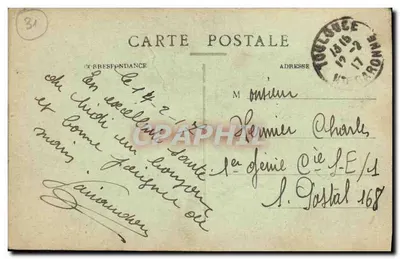 31
CARTE POSTALE
CORRESPONDANCE
ADRESSE
TOULOUSE
HTE GARONNE
le 14-2-17
En excellente santé
du midi un bonjour
et bonne poignée de
main
Monsieur
Hermier Charles
1er Génie Cie S-E/1
S. Postal 168
Cartepostale